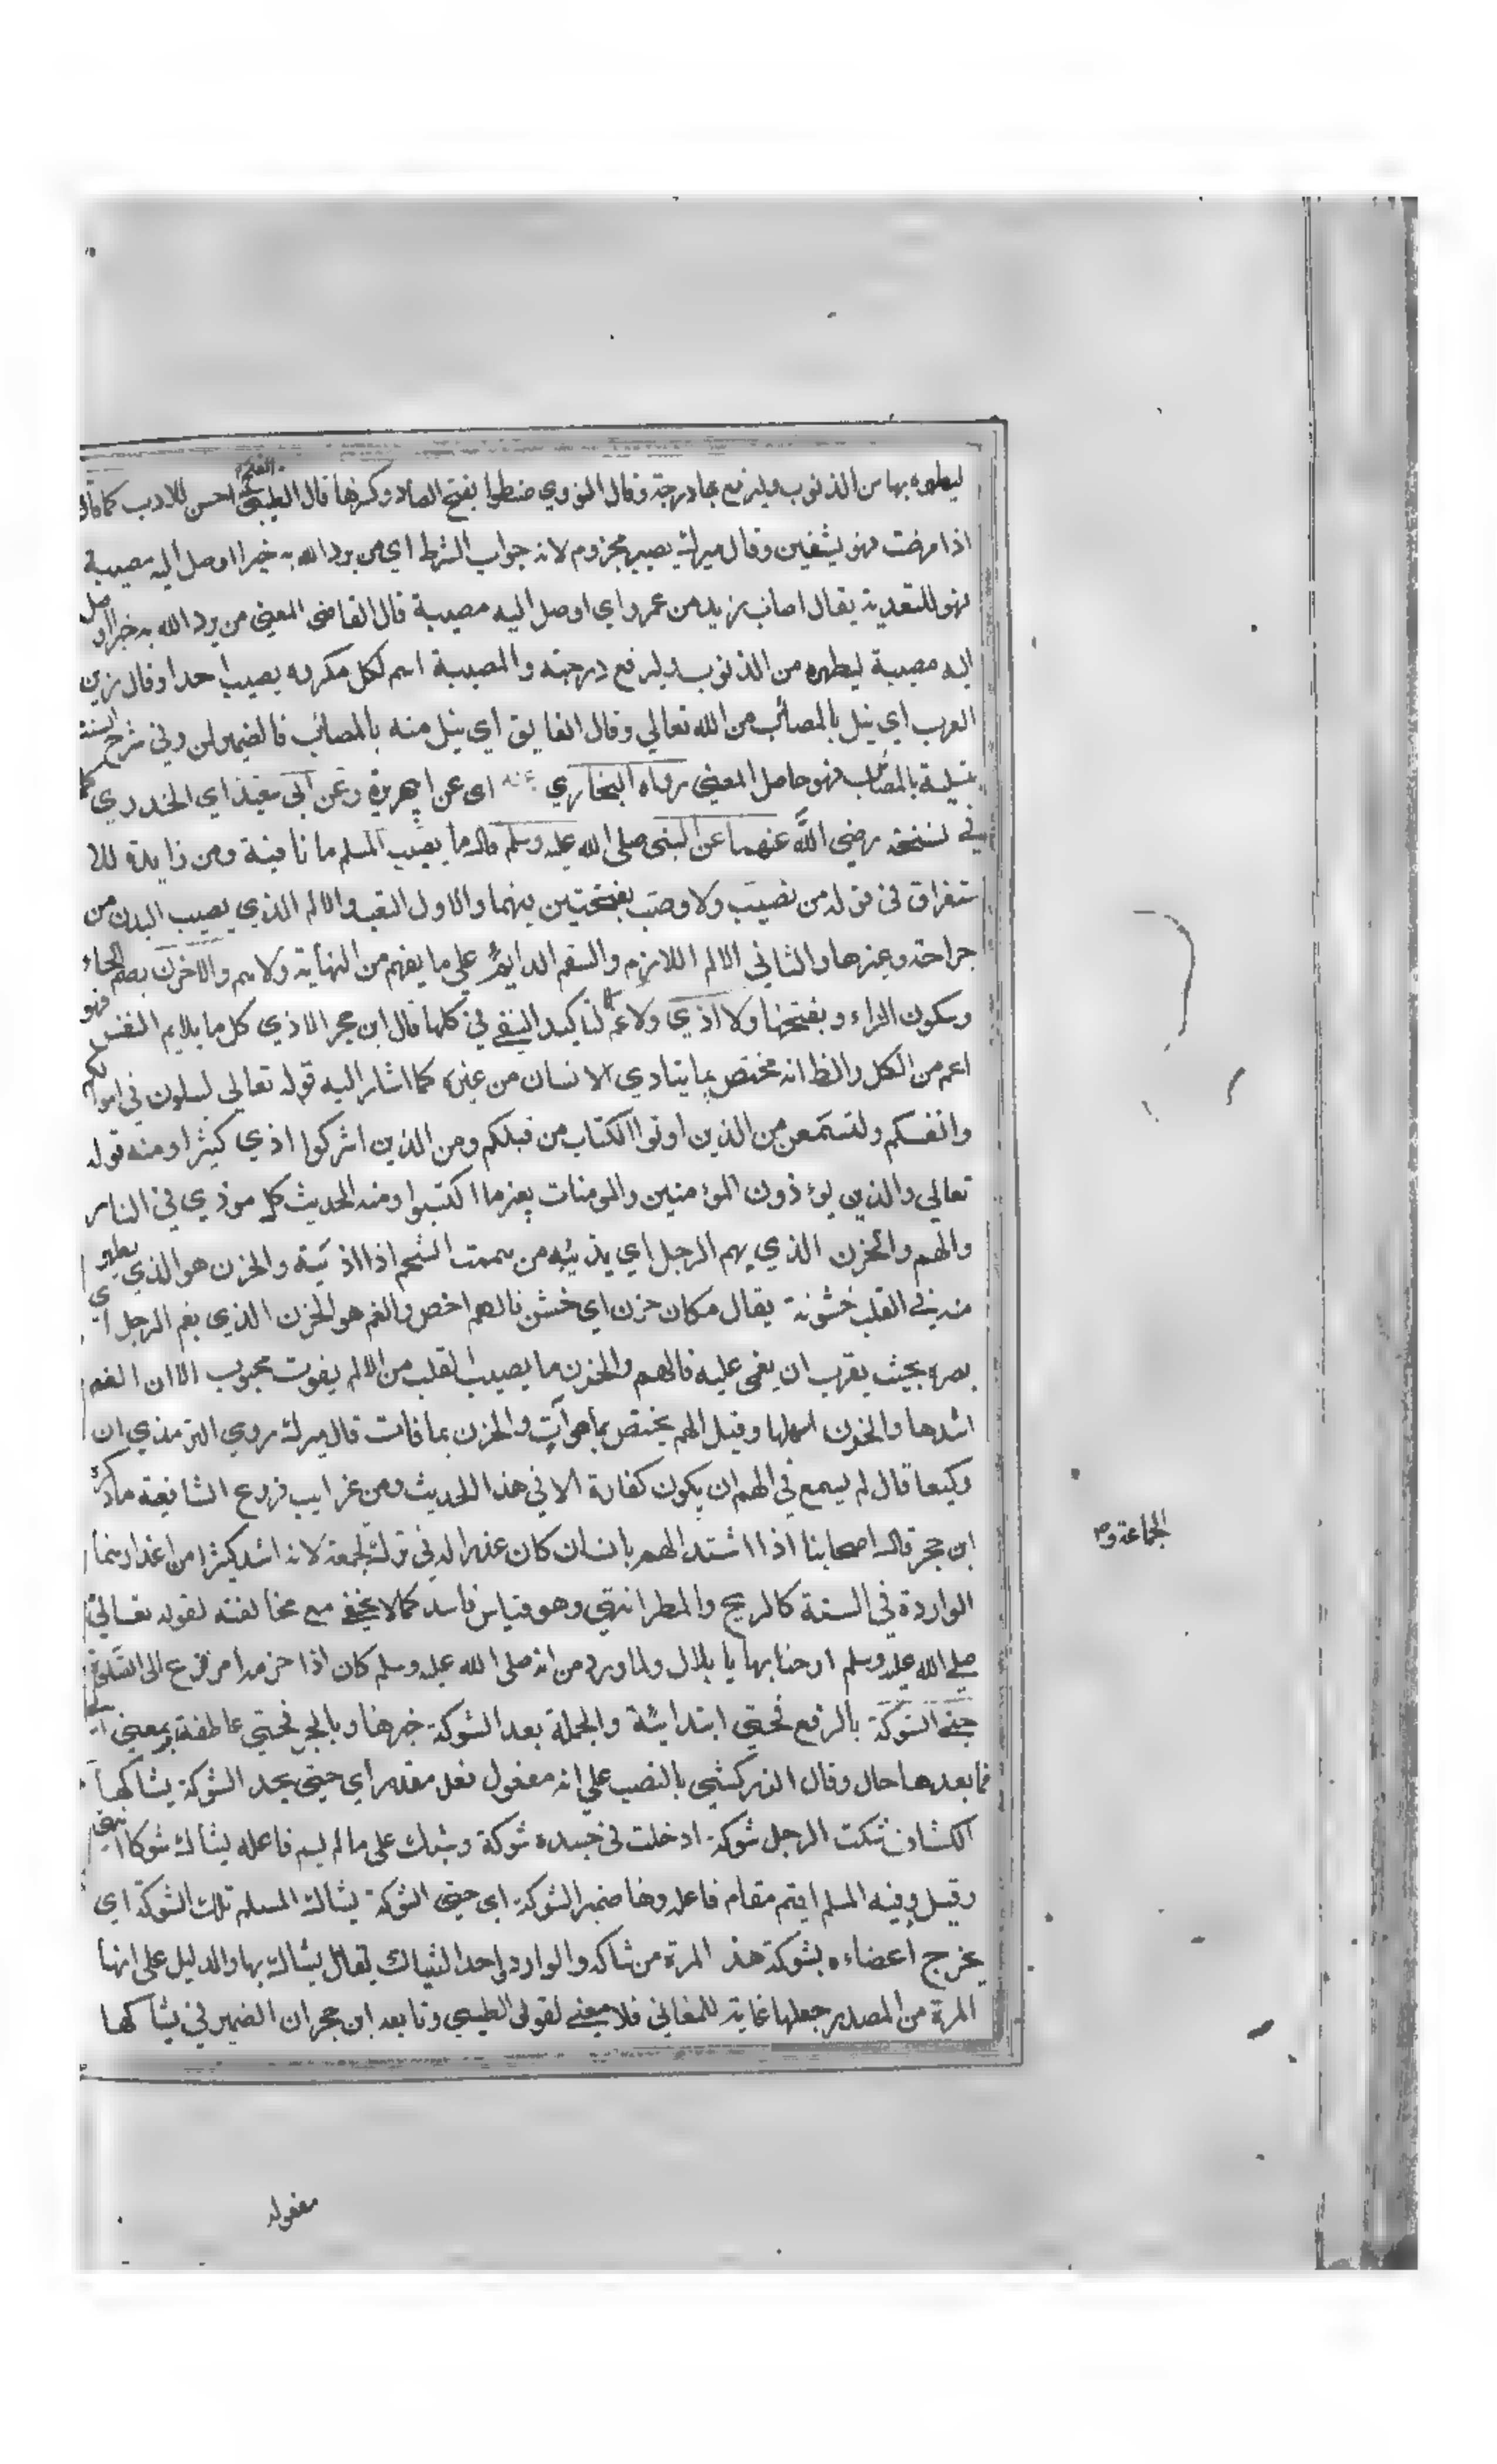 ليطهره بها من الذنوب وليرفع بها درجة وقال النووي ضبطوا بفتح الصاد وكسرها قال الطيبي الفتح احسن للادب كما قال
اذا مرضت فهو يشفين وقال ميرك يصب مجزوم لانه جواب الشرط اي من يرد الله به خيرا اوصل اليه مصيبة
فهو للتعدية يقال اصاب زيد من عمرو اي اوصل اليه مصيبة قال القاضي المعني من يرد الله به خيرا اوصل
اليه مصيبة ليطهره من الذنوب وليرفع درجته والمصيبة اسم لكل مكروه يصيب احدا وقال زين
العرب اي ينل بالمصائب من الله تعالي وقال الفايق اي ينل منه بالمصائب فالضمير لمن وفي شرح السنة
يبتليه بالمصائب فهو حاصل المعني رواه البخاري عنه اي عن ابي هريرة وعن ابي سعيد اي الخدري كما
في نسخة رضي الله عنهما عن النبي صلى الله عليه وسلم قال ما يصيب المسلم ما نافية ومن زايدة للا
ستغراق في قوله من نصب ولا وصب بفتحتين فيهما والاول التعب والالم الذي يصيب البدن من
جراحة وغيرها والثاني الالم اللازم والسقم الدايم علي ما يفهم من النهاية ولا هم والاخزن بضم الحاء
وسكون الزاء وبفتحها ولا اذي ولا غم لا لتاكيد النفي في كلها قال ابن حجر الاذي كل ما يلايم النفس فهو
اعم من الكل والظ انه مختص بما يتاذي الانسان من غيره كما اشار اليه قوله تعالي لتبلون في اموالكم
وانفسكم ولتسمعن من الذين اوتوا الكتاب من قبلكم ومن الذين اشركوا اذي كثيرا ومنه قوله
تعالي والذين يؤذون المؤمنين والمومنات بغير ما اكتسبوا ومنه الحديث كل موذي في النار
والهم والحزن الذي يهم الرجل اي يذيبه من هممت الشحم اذا اذبته والحزن هو الذي يظهر
منه في القلب خشونة يقال مكان حزن اي خشن فالهم اخص والغم هو الحزن الذي يغم الرجل اي
يصره بحيث يقرب ان يغمي عليه فالهم والحزن ما يصيب القلب من الالم بفوت محبوب الا ان الغم
اشدها والحزن اسهلها وقيل الهم يختص بما هو آت والحزن بما فات قال ميرك روي الترمذي ان
وكيعا قال لم يسمع في الهم ان يكون كفارة الا في هذا الحديث ومن غرايب فروع الشافعية ما ذكره
ابن حجر قال اصحابنا اذا اشتد الهم بانسان كان عذرا له في ترك الجمعة لانه اشد كثيرا من اعذارهما
الجماعة و صح
الواردة في السنة كالريح والمطر انتهي وهو قياس فاسد كما لا يخفي مع مخالفته لقوله تعالي
صلي الله عليه وسلم ارحنا بها يا بلال ولما ورد من انه صلى الله عليه وسلم كان اذا حزبه امر فزع الى الصلوة
حتي الشوكة بالرفع فحتي ابتدائية والجملة بعد الشوكة خبرها وبالجر فحتي عاطفة بمعني
فما بعدها حال وقال الزركشي بالنصب علي انه مفعول فعل مقدر اي حتي يجد الشوكة يشاكها
الكشاف شكت الرجل شوكة ادخلت في جسده شوكة وشيك علي ما لم يسم فاعله يشاك شوكا انتهي
وقيل وفيه المسلم اقيم مقام فاعله وها ضمير الشوكة اي حتى الشوكة يشاك المسلم تلك الشوكة اي
يخرج اعضاءه بشوكة هذ المرة من شاكه والوارد واحد الثياك يقال يشاك بها والدليل على انها
المرة من المصدر جعلها غاية للمعاني فلا معني لقول الطيبي وتابعه ابن حجر ان الضمير في يشاكها
مفعوله